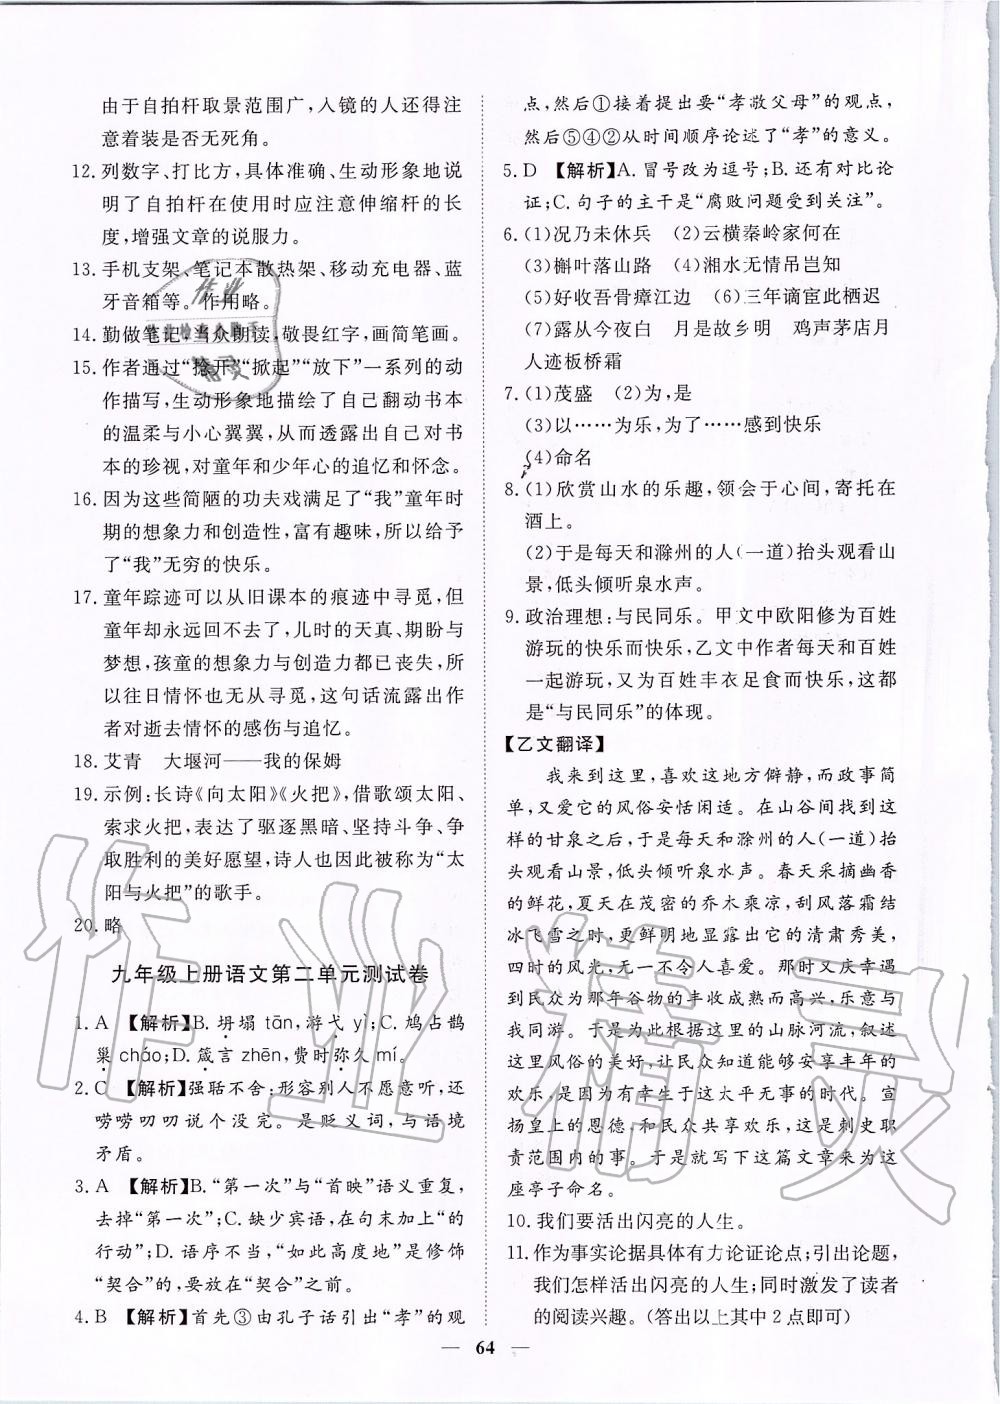 由于自拍杆取景范围广,入镜的人还得注
意着装是否无死角。
12. 列数字、打比方,具体准确、生动形象地说
明了自拍杆在使用时应注意伸缩杆的长
度,增强文章的说服力。
13. 手机支架、笔记本散热架、移动充电器、蓝
牙音箱等。作用略。
14. 勤做笔记,当众朗读,敬畏红字,画简笔画。
15. 作者通过“捻开”“掀起”“放下”一系列的动
作描写,生动形象地描绘了自己翻动书本
的温柔与小心翼翼,从而透露出自己对书
本的珍视,对童年和少年心的追忆和怀念。
16. 因为这些简陋的功夫戏满足了“我”童年时
期的想象力和创造性,富有趣味,所以给予
了“我”无穷的快乐。
17. 童年踪迹可以从旧课本的痕迹中寻觅,但
童年却永远回不去,儿时的天真、期盼与
梦想,孩童的想象力与创造力都已丧失,所
以往日情怀也无从寻觅,这句话流露出作
者对逝去情怀的感伤与追忆。
18. 艾青 大堰河——我的保姆
19. 示例:长诗《向太阳》《火把》,借歌颂太阳、
索求火把,表达了驱逐黑暗、坚持斗争、争
取胜利的美好愿望,诗人也因此被称为“太
阳与火把”的歌手。
20. 略
九年级上册语文第二单元测试卷
1. A 【解析】B. 坍塌 tān,游弋 yì;C. 鸠占鹊
巢 cháo;D. 箴言 zhēn,费时弥久 mí。
2. C 【解析】强聒不舍:形容别人不愿意听,还
唠唠叨叨说个没完。是贬义词,与语境
矛盾。
3. A 【解析】B. “第一次”与“首映”语义重复,
去掉“第一次”;C. 缺少宾语,在句末加上“的
行动”;D. 语序不当,“如此高度地”是修饰
“契合”的,要放在“契合”之前。
4. B 【解析】首先③由孔子话引出“孝”的观
点,然后①接着提出要“孝敬父母”的观点,
然后⑤④②从时间顺序论述了“孝”的意义。
5. D 【解析】A. 冒号改为逗号;B. 还有对比论
证;C. 句子的主干是“腐败问题受到关注”。
6. (1)况乃未休兵 (2)云横秦岭家何在
(3)槲叶落山路 (4)湘水无情吊岂知
(5)好收吾骨瘴江边 (6)三年谪宦此栖迟
(7)露从今夜白 月是故乡明 鸡声茅店月
人迹板桥霜
7. (1)茂盛 (2)为,是
(3)以……为乐,为了……感到快乐
(4)命名
8. (1)欣赏山水的乐趣,领会于心间,寄托在
酒上。
(2)于是每天和滁州的人(一道)抬头观看山
景,低头倾听泉水声。
9. 政治理想:与民同乐。甲文中欧阳修为百姓
游玩的快乐而快乐,乙文中作者每天和百姓
一起游玩,又为百姓丰衣足食而快乐,这都
是“与民同乐”的体现。
【乙文翻译】
我来到这里,喜欢这地方僻静,而政事简
单,又爱它的风俗安恬闲适。在山谷间找到这
样的甘泉之后,于是每天和滁州的人(一道)抬
头观看山景,低头倾听泉水声。春天采摘幽香
的鲜花,夏天在茂密的乔木乘凉,刮风落霜结
冰飞雪之时,更鲜明地显露出它的清肃秀美,
四时的风光,无一不令人喜爱。那时又庆幸遇
到民众为那年谷物的丰收成熟而高兴,乐意与
我同游。于是为此根据这里的山脉河流,叙述
这里风俗的美好,让民众知道能够安享丰年的
欢乐,是因为有幸生于这太平无事的时代。宣
扬皇上的恩德,和民众共享欢乐,这是刺史职
责范围内的事。于是就写下这篇文章来为这
座亭子命名。
10. 我们要活出闪亮的人生。
11. 作为事实论据具体有力论证论点;引出论题,
我们怎样活出闪亮的人生;同时激发了读者
的阅读兴趣。(答出以上其中 2 点即可)
64
作业精灵